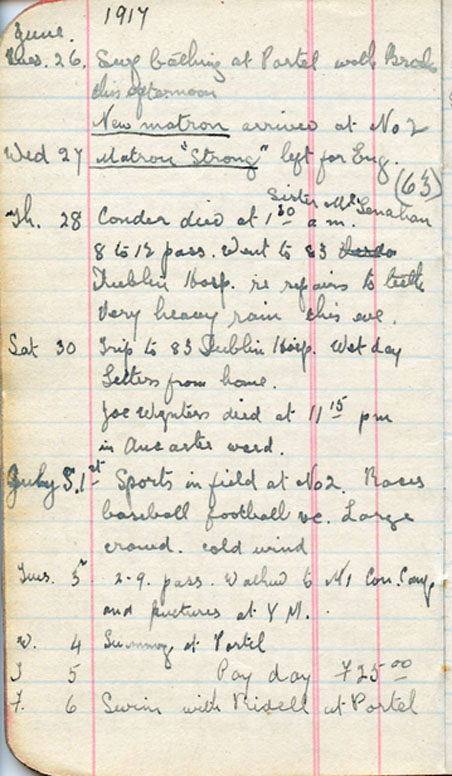 June. 1917
Tues. 26. Surf bathing at Portel with
this afternoon
New matron arrived at No 2
Wed 27 Matron "Strong" left for Eng.
(63)
Sister McLenahan
Th. 28 Conder died at 1 30 a m.
8 to 12 pass. Went to 83
Dublin Hosp. re repairs to teeth
Very heavy rain this eve.
Sat 30 Trip to 83 Dublin Hosp. Wet day
Letters from home.
Joe Wynters died at 11 15 pm
in Ancaster ward.
July S. 1st Sports in field at No 2. Races
baseball football &c. Large
crowd. cold wind
Tues. 2-9. pass. Walked to No 1 Con. Camp
and pictures at Y M.
W. 4 at Portel
5 Pay day 725 00
7. 6 Swim with Ridell at Portel